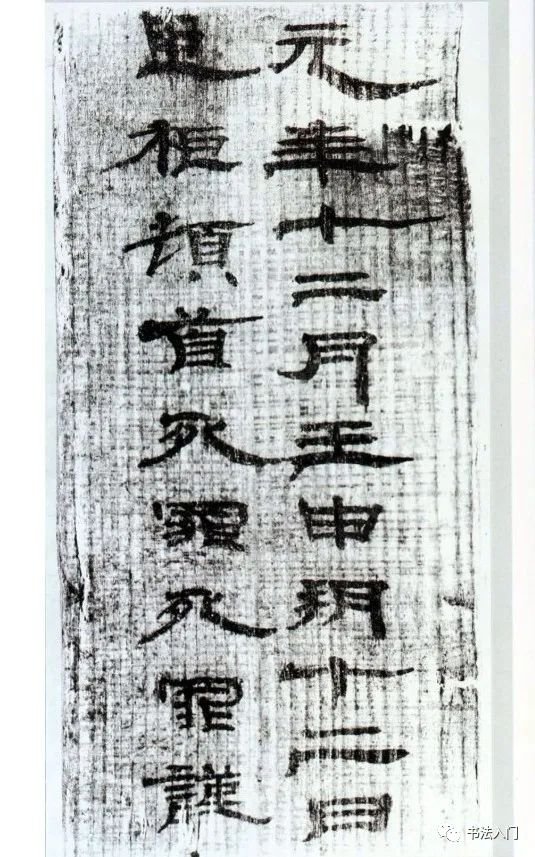 元年十二月壬申朔十二日
頓首死罪死罪謹
书法入门